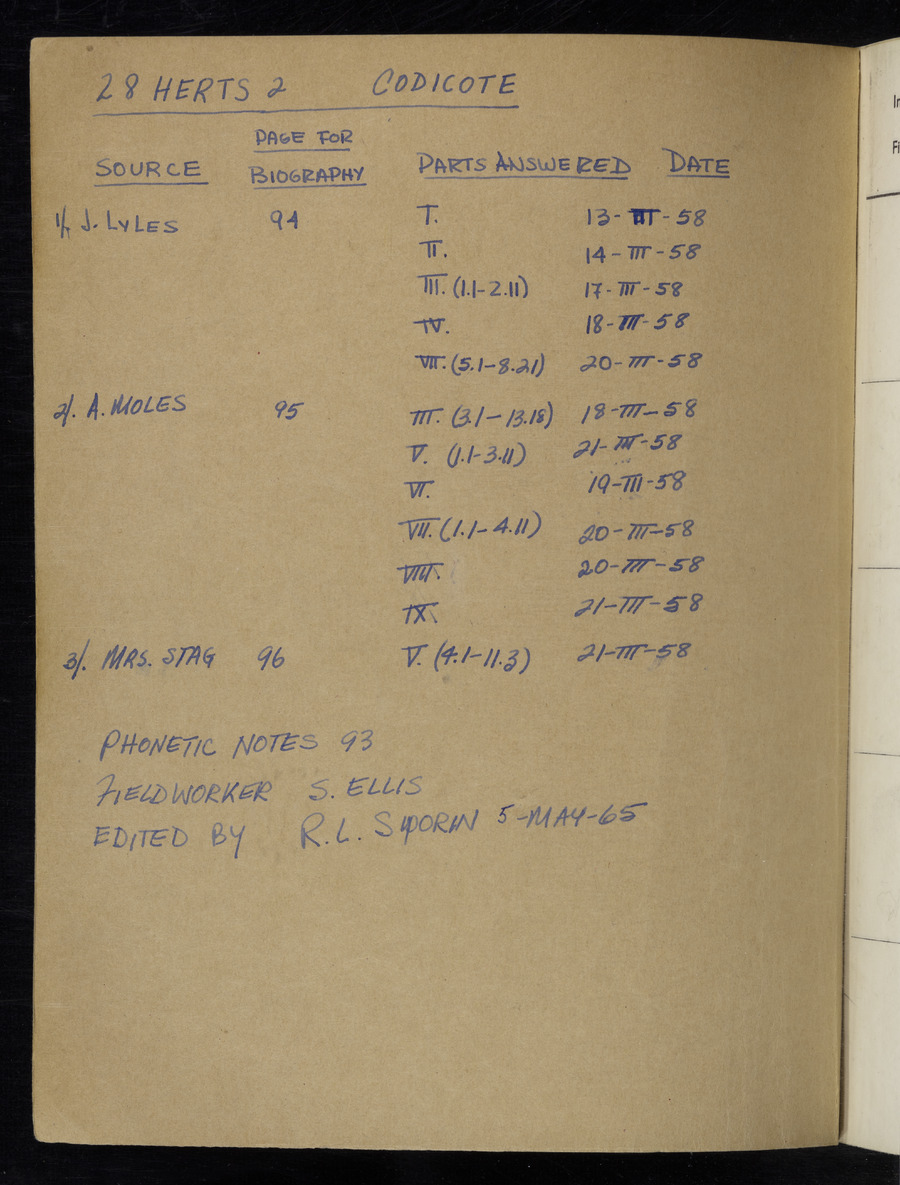 28 HERTS 2 CODICOTE
SOURCE PAGE FOR BIOGRAPHY PARTS ANSWERED DATE
1/. J. LYLES 94 I. 13-III-58
II. 14-III-58
III. (1.1-2.11) 17-III-58
IV. 18-III-58
VII. (5.1-8.21) 20-III-58
2/. A. MOLES 95 III. (3.1-13.18) 18-III-58
V. (1.1-3.11) 21-III-58
VI. 19-III-58
VII. (1.1-4.11) 20-III-58
VIII. 20-III-58
IX. 21-III-58
3/. MRS. STAG 96 V. (4.1-11.3) 21-III-58
PHONETIC NOTES 93
FIELDWORKER S. ELLIS
EDITED BY R.L. SIPORIN 5-MAY-65